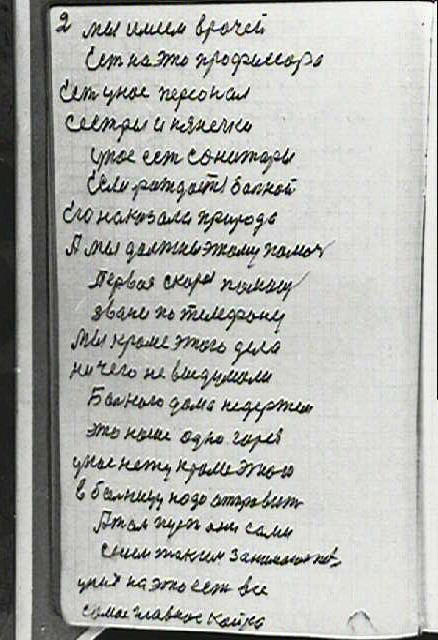 2 мы имеем врачей
Ест на это професора
Ест уное персонал
Сестры и нянечки
уное ест санитары
Если рождаетс болной
Его наказала природа
А мы должны этому помоч
Первая скора помощ
звани по телефону
мы кроме этого дела
ни чего не выдумали
Болного дома недержем
это наше одно горе
уное нету кроме этого
в болницу надо отправит
А там пуст они сами
с ним
уних на это ест все
самое главное койка